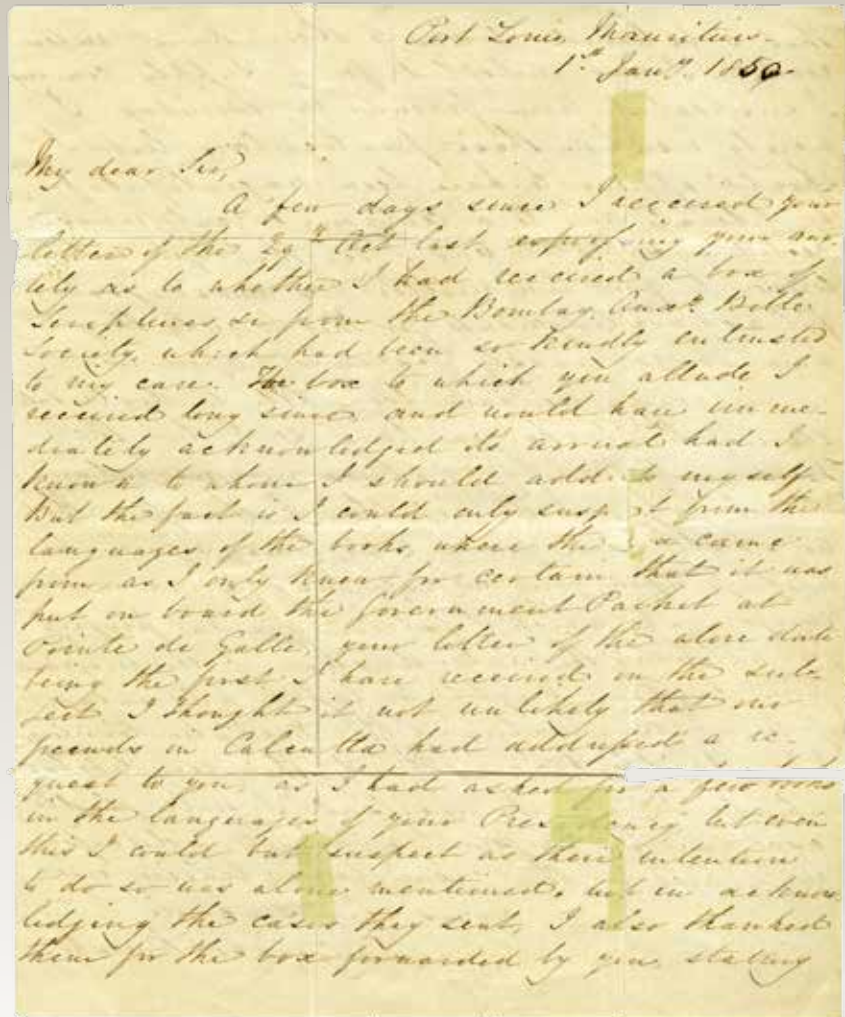 Port Louis, Mauritius.
1st Jany. 1850.
My dear Sir,
A few days since I received your
letter of the 29th Oct last expressing your anx
iety as to whether I had received a box of
Scriptures &c from the Bombay Auxy. Bible
Society, which had been so kindly entrusted
to my care. The box to which you allude I
received long since and would have imme-
diately acknowledged its arrival had I
known to whom I should address myself.
But the fact is I could only suspect from the
languages of the books, where they came
from as I only knew for certain that it was
put on board the Government Packet at
Pointe de Galle, your letter of the above date
being the first I have received on the sub-
ject I thought it not unlikely that our
friends in Calcutta had addressed a re-
quest to you, as I had asked for a few books
in the languages of your Presidency but even
this I could but suspect as their intention
to do so was alone mentioned, but in acknow
ledging the cases they sent, I also thanked
them for the box forwarded by you, stating